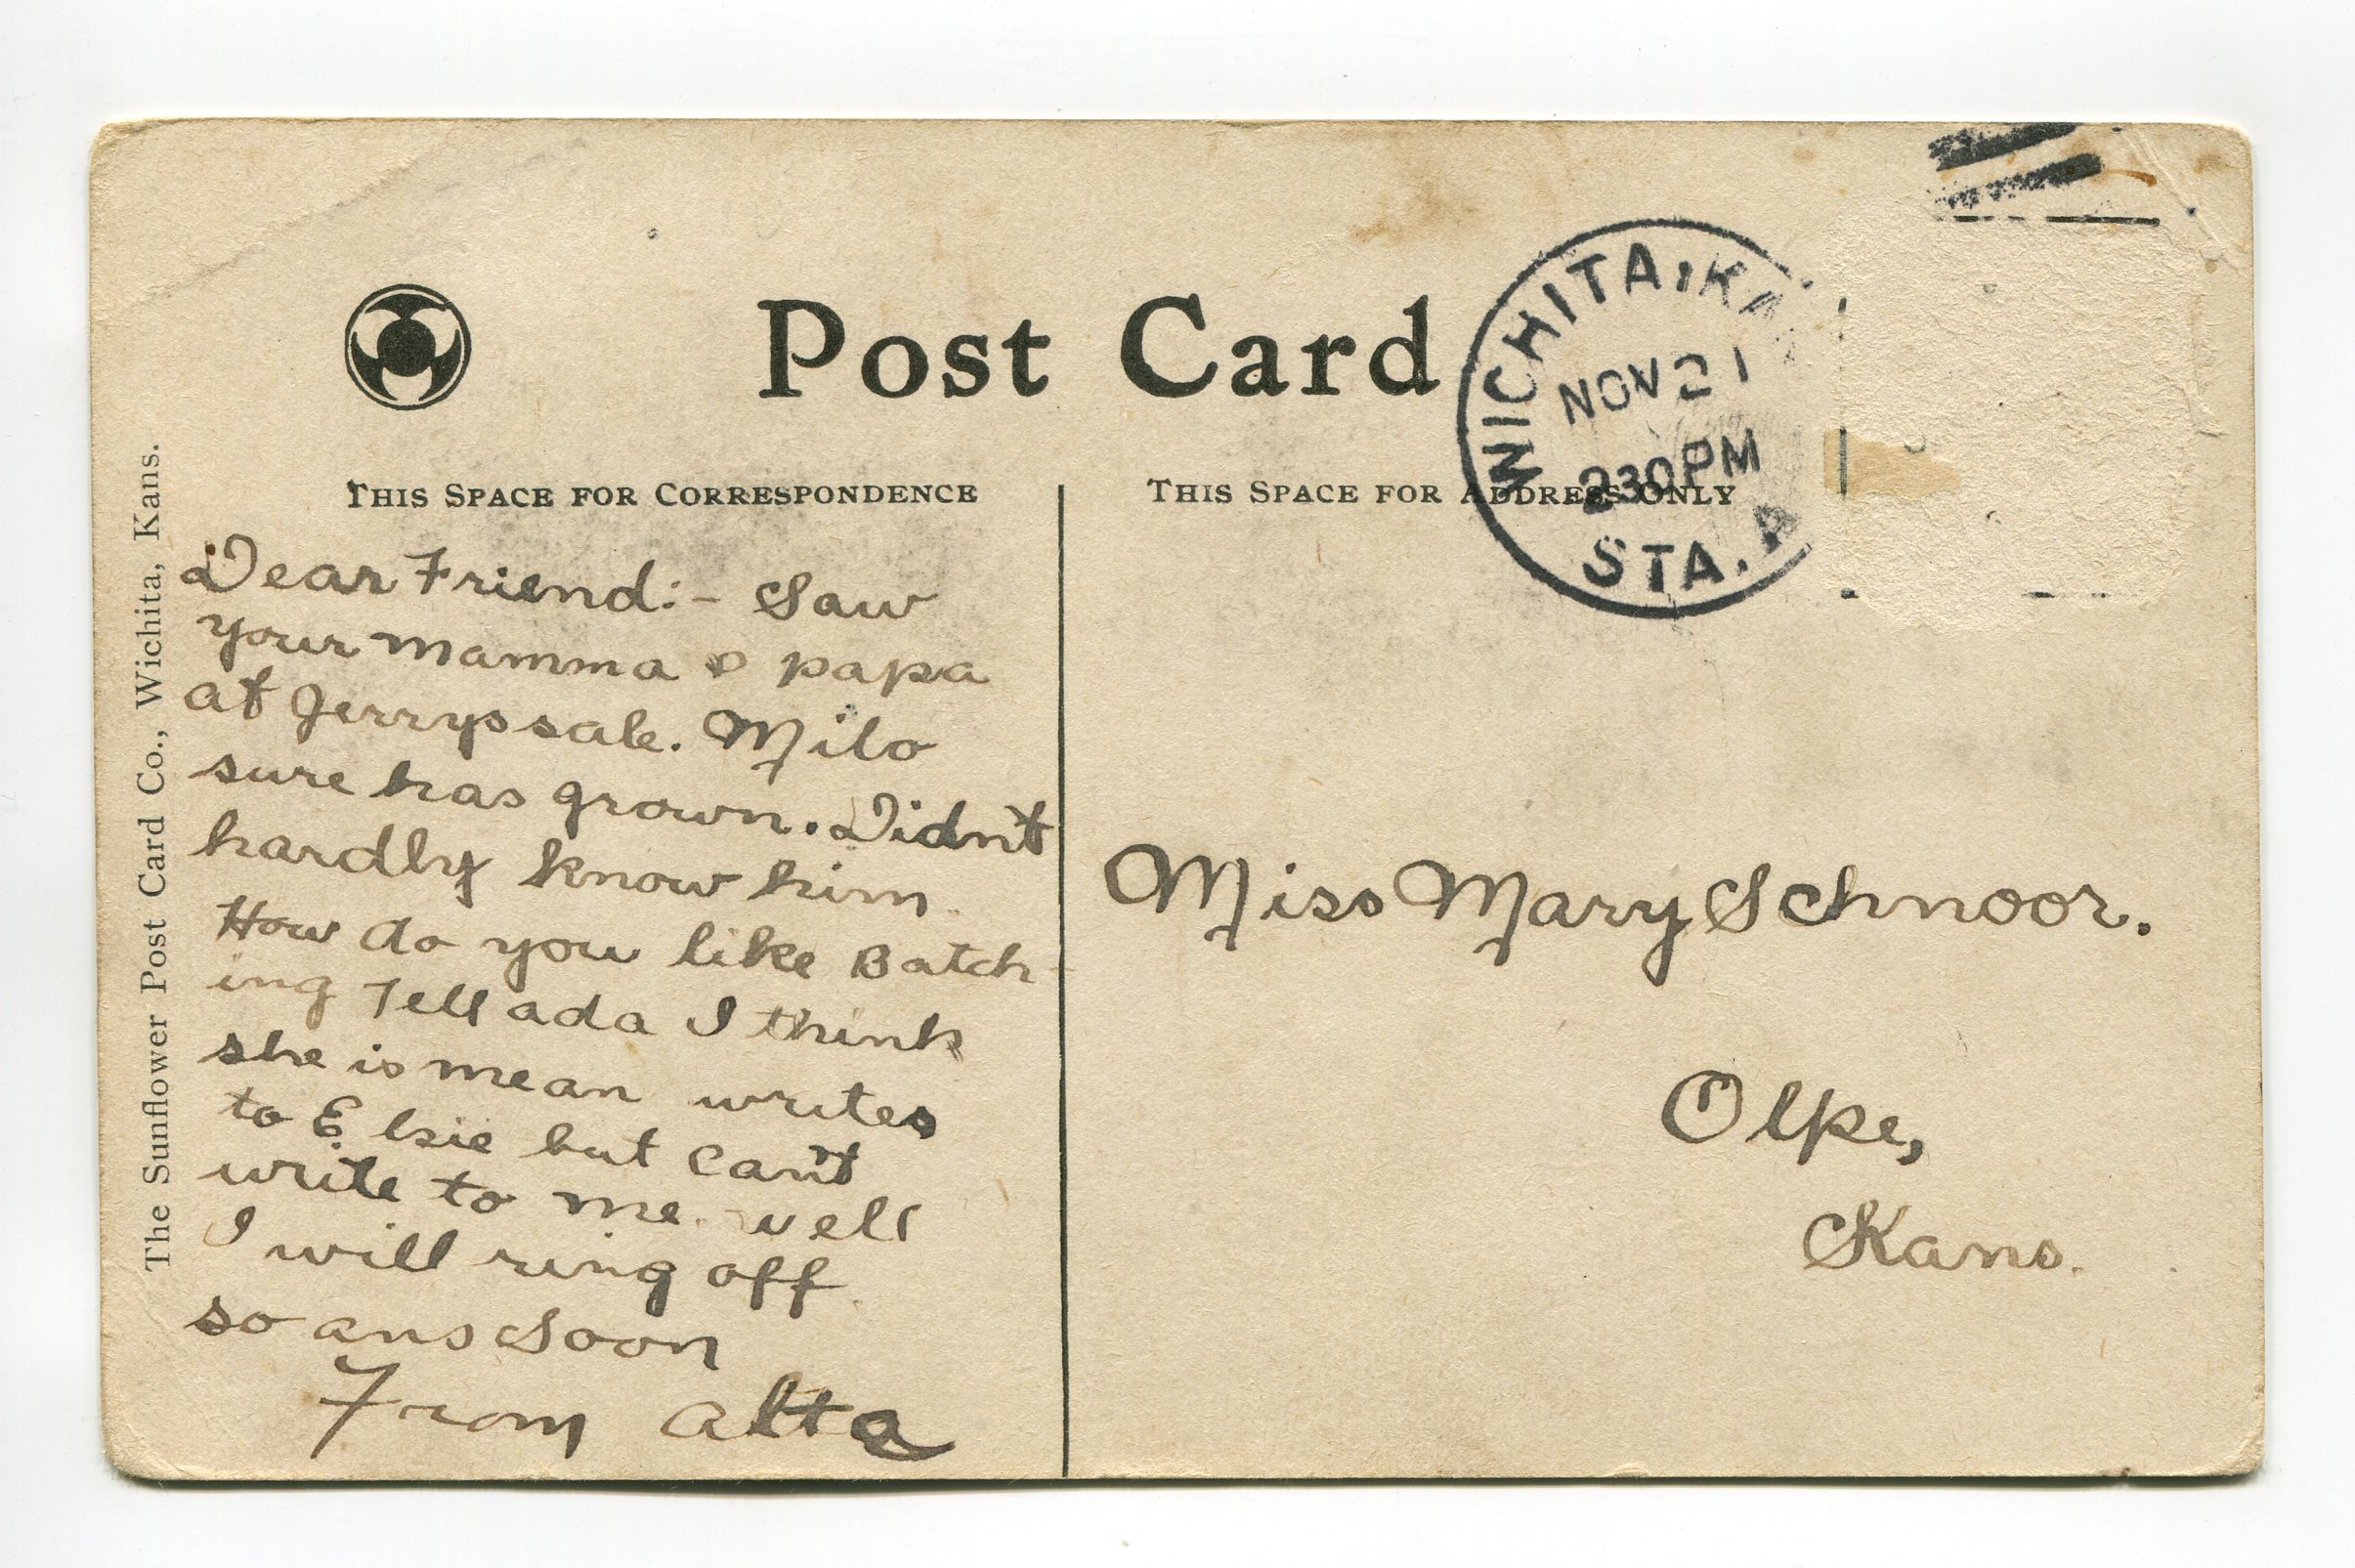 Post Card
THIS SPACE FOR CORRESPONDENCE
THIS SPACE FOR ADDRESS ONLY
WICHITA, KA
NOV 21
230 PM
STA. A
The Sunflower Post Card Co., Wichita, Kans.
Dear Friend:- Saw
your mamma & papa
at Jerrys sale. Milo
sure has grown. Didn't
hardly know him
How do you like Batch-
ing Tell ada I think
she is mean writes
to Elsie but can't
write to me. well
I will ring off.
so ans soon
From alta
Miss Mary Schnoor.
Olpe,
Kans.